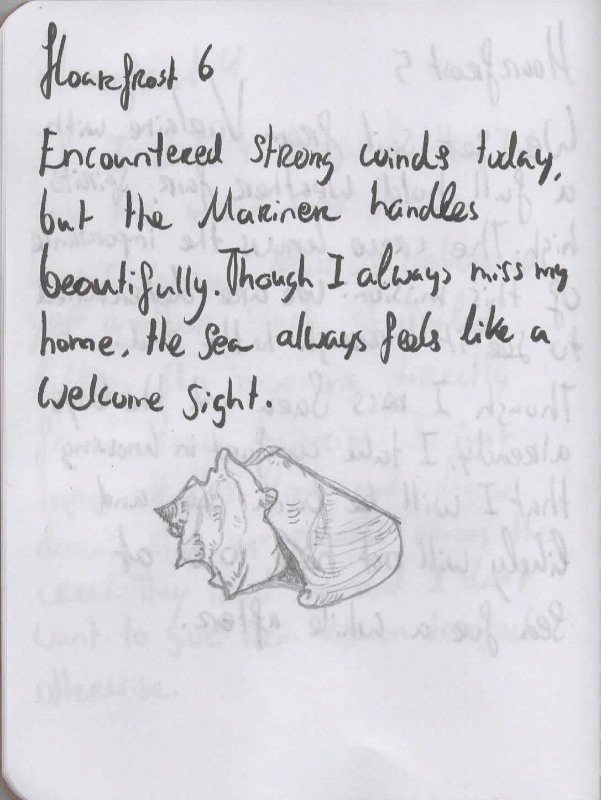 Hoarfrost 6
Encountered strong winds today,
but the Mariner handles
beautifully. Though I always miss my
home, the sea always feels like a
welcome sight.